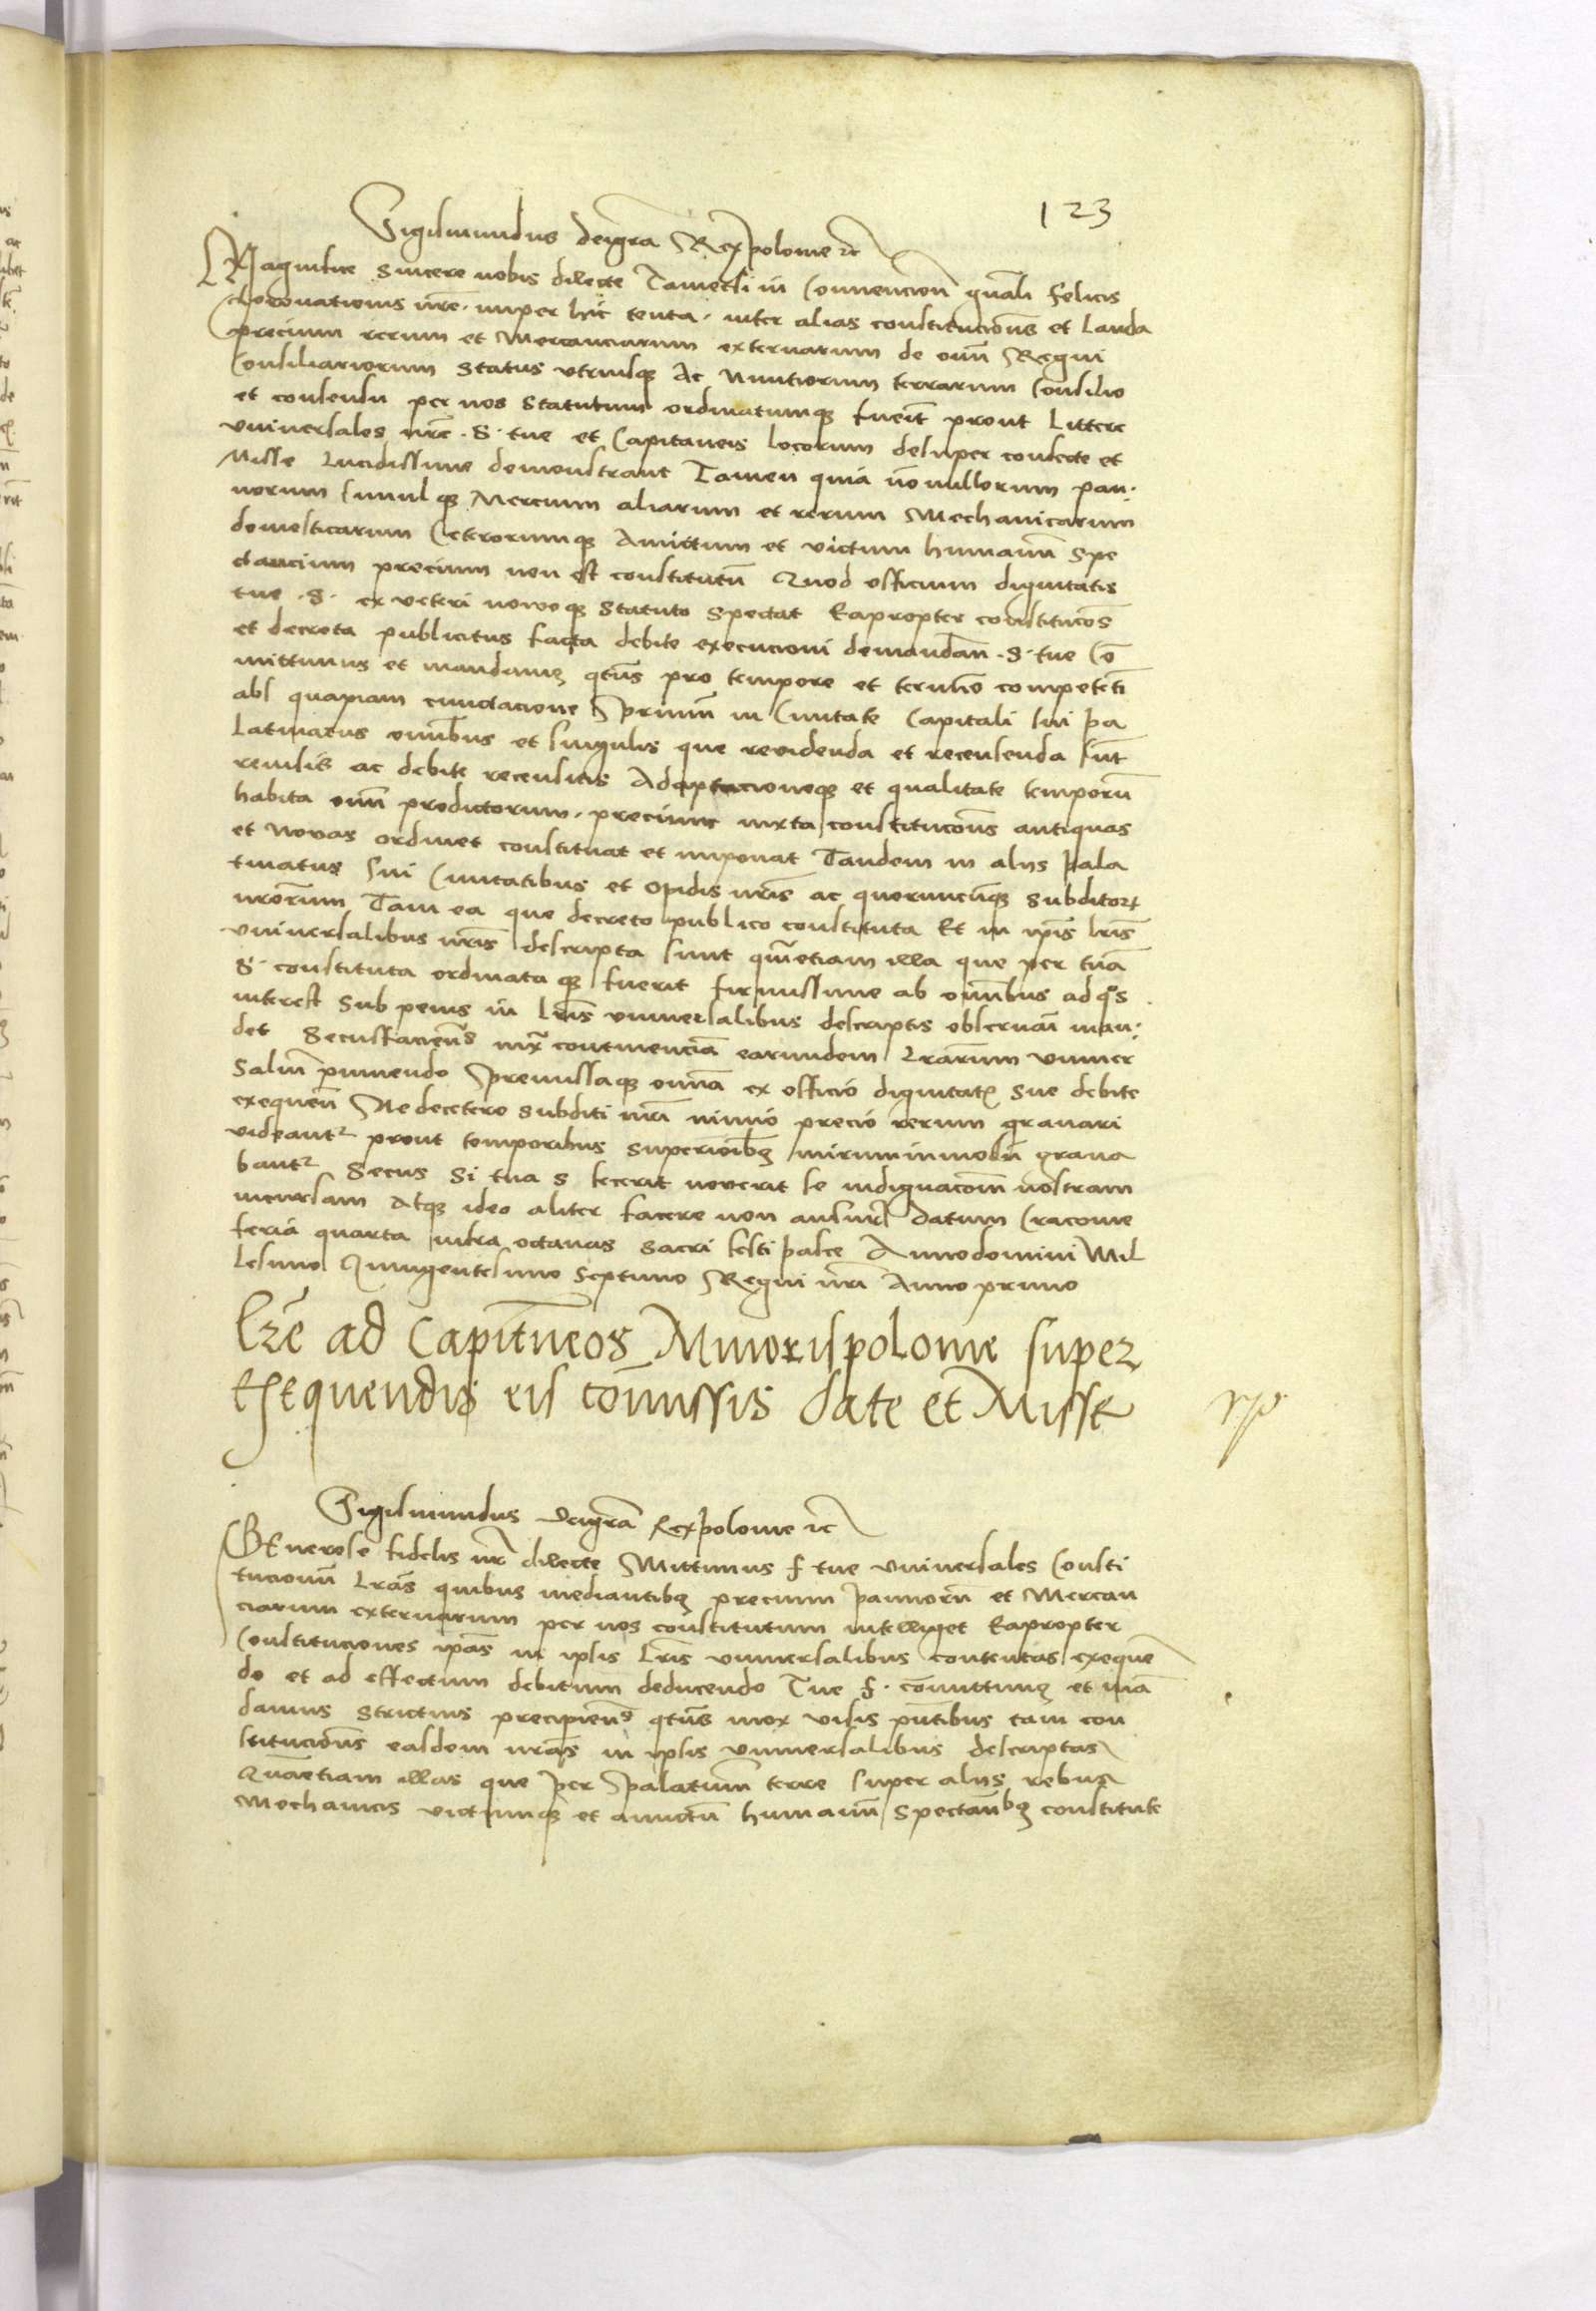 123
Sigismundus deigra Rex polonie etc
Magnifice sincere nobis dilecte Tametsi in Convencion gnali felicis
Coronationis nre nuper hic tenta inter alias constitucions et lauda
precium rerum et Mercanciarum externarum de omn Regni
Consiliariorum status utriusque Ac Nuntiorum terrarum Consilio
et consensu per nos statutum ordinatumque fuerit prout Littere
universales nre . S . tue et Capitaneis locorum desuper confecte et
Misse Lucidissime demonstrant Tamen quia nonullorum pan:
norum simulque Mercium aliarum et rerum Mechanicarum
domesticarum Ceterorumque Amictum et victum humanum spe
ctancium precium non est constitutum Quod officium dignitatis
tue . S . ex veteri novoque statuto spectat Eapropter constitucos
et decreta publicitus facta debite execucioni demandan . S . tue Co
mittimus et mandamus qtus pro tempore et termino competenti
abs quapiam cunctacione primum in Civitate Capitali sui pa
latinatus omnibus et singulis que revidenda et recensenda sunt
revisis ac debite recensitis Adaptacioneque et qualitate temporum
habita omn predictorum precium iuxta constitucons antiquas
et novas ordinet constituat et imponat Tandem in aliis pala
tinatus sui Civitatibus et opidis nris ac quorumcunque subditor
nrorum Tam ea que decreto publico constituta Et in ipis lris
universalibus nris descripta sunt quam etiam illa que per tuam
S . constituta ordinataque fuerit firmissime ab omnibus ad quos
interest sub penis in lris universalibus descriptis observari man:
det Secusfaciens iuxta continenciam earundem lrarum univer
salium puniendo premissaque omnia ex officio dignitatis sue debite
exequen Ne decetero subditi nri nimio precio rerum gravari
videantur prout temporibus superioribus mirum in modum grava
bantur Secus si tua S fecerit noverit se indignacom nostram
incursam Atque ideo aliter facere non ausur Datum Cracovie
feria quarta infra octavas sacri festi pasce Anno domini Mil
lesimo Quingentesimo Septimo Regni nri Anno primo
Lre ad Capitneos Minorispolonie super
exequendis eis comissis date et Misse
Sigismundus deigra Rex polonie etc
Generose fidelis nr dilecte Mittimus f tue universales Consti
tucionum lras quibus mediantibus precium pannorum et Mercan
ciarum externarum per nos constitutum intelliget Eapropter
Constituciones ipas in ipsis lris universalibus contentas exequen
do et ad effectum debitum deducendo Tue f . comittimus et man
damus strictius precipiens qtus mox visis pntibus tam con
stitucions easdem nras in ipsis universalibus descriptas
Quam etiam illas que per palatinum terre super aliis rebus
Mechanicis victumque et amictum humanum spectantibus constitute